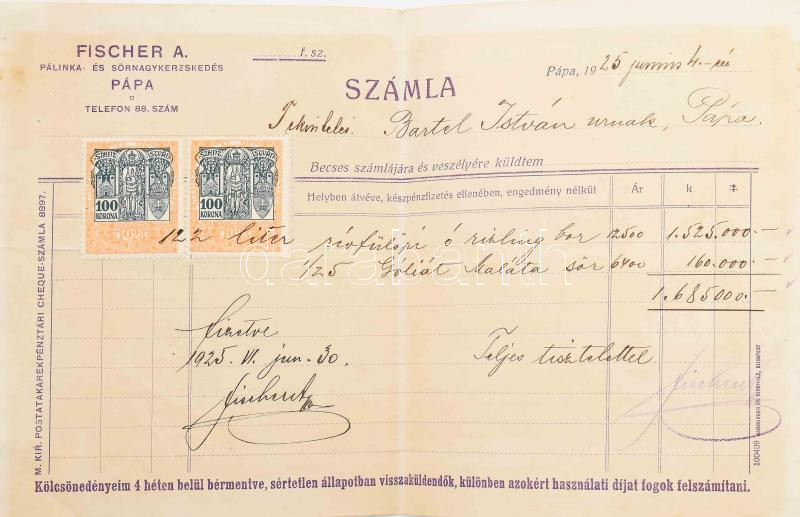 FISCHER A.
PÁLINKA- ÉS SÖRNAGYKERESKEDÉS
PÁPA
TELEFON 88. SZÁM
f. sz.
Pápa, 1925 junius 4.-én
SZÁMLA
Tekintetes Bartel István urnak, Pápa.
Becses számlájára és veszélyére küldtem
Helyben átvéve, készpénzfizetés ellenében, engedmény nélkül Ár k f
SZENT ISTVÁN
100 KORONA
SZENT ISTVÁN
100 KORONA
122 liter révfülöpi ó rizling bor 12500 1.525.000.-
1/25 Góliát Maláta sör 6400 160.000.-
1.685000.-
Fizetve
1925. VI. jun. 30.
Fischer A.
Teljes tisztelettel
Fischer A.
M. KIR. POSTATAKARÉKPÉNZTÁRI CHEQUE-SZÁMLA 8897.
100439
Kölcsönedényeim 4 héten belül bérmentve, sértetlen állapotban visszaküldendők, különben azokért használati díjat fogok felszámítani.
darabanth